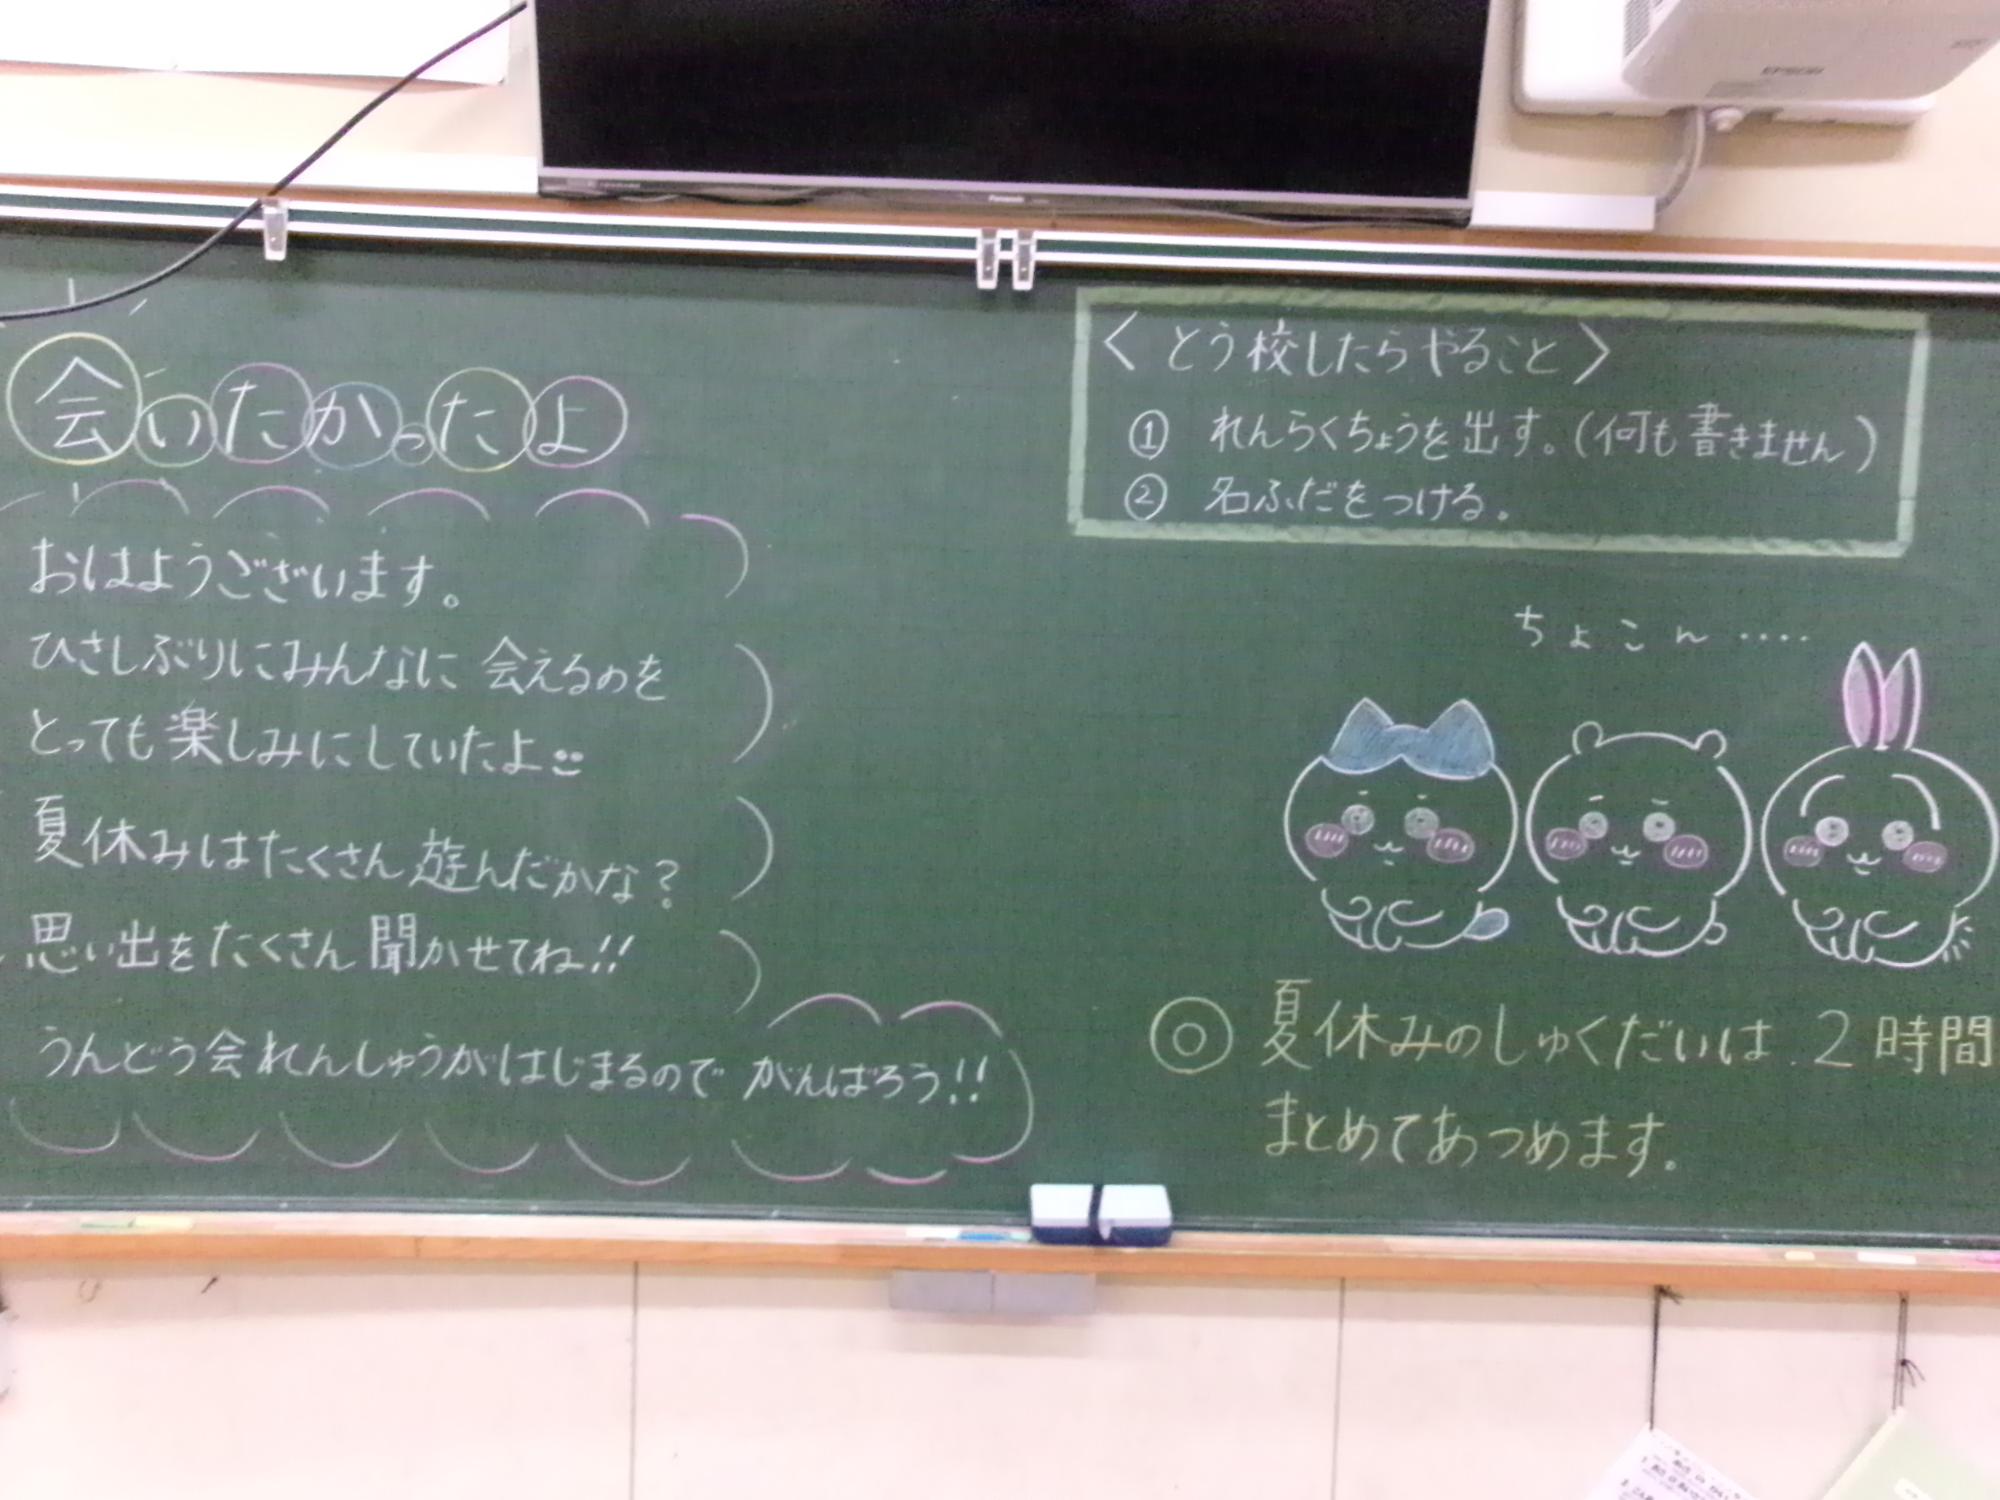 EPSON
Panasonic
会いたかったよ
おはようございます。
ひさしぶりにみんなに会えるのを
とっても楽しみにしていたよ
夏休みはたくさん遊んだかな?
思い出をたくさん聞かせてね!!
うんどう会れんしゅうがはじまるのでがんばろう!!
〈とう校したらやること〉
① れんらくちょうを出す。(何も書きません)
② 名ふだをつける。
ちょこん‥‥
◎ 夏休みのしゅくだいは、2時間
まとめてあつめます。